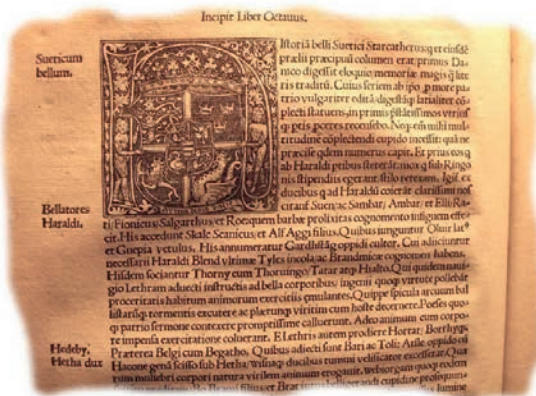 Incipit Liber Octauus.
Sueticum
bellum.
Istoriā belli Suetici Starcatherus: q et eiusdē
prælii præcipuū columen erat, primus Da-
nico digessit eloquio, memoriæ magis q̃ lite
ris traditū. Cuius seriem ab ipo p more pa
trio vulgariter editā digestāq; latialiter cō-
plecti statuens, in primis
recensebo. Neq; em̄ mihi mul
titudinē cōplectendi cupido incessit: quā ne
præcise qdem numerus capit. Et prius eos q
ab Haraldi ptibus steterāt: mox q sub Ringo
nis stipendiis egerant, stilo retexam. Igit̃ ex
ducibus q ad Haraldū coierāt clarissimi nos
cūtur Suen, ac Sambar, Ambar, et Elli. Ra-
ti, Fionicus, Salgarthus, et Roe: quem barbæ prolixitas cognomento insignem effe
cit. His accedunt Skale Scanicus, et Alf Aggi filius. Quibus iunguntur Oluir lat9
et Gnepia vetulus. His annumeratur Gardh oppidi cultor. Cui adiiciuntur
necessarii Haraldi Blend vltimæ Tyles incola, ac Brandmicæ cognomen habens.
Hisdem sociantur Thorny cum Thoruingo, Tatar atq; Hialto. Qui quidem naui-
gio Lethram aduecti instructis ad bella corporibus, ingenii quoq; virtute pollebāt
proceritatis habitum animorum exercitiis æmulantes. Quippe spicula arcuum bal
listarūq; tormentis excutere ac plerunq; viritim cum hoste decernere. Poeses quo-
q; patrio sermone contexere promptissime calluerunt. Adeo animum cum corpo-
re impensa exercitatione coluerant. E Lethris autem prodiere Hortar, Borrhyq;
Præterea Belgi cum Begatho. Quibus adiecti sunt Bari ac Toli: At e Sle oppido cū
Hacone genā scisso sub Hetha, Wisnaq; ducibus tumuli velificator excesserat. Qua
rum muliebri corpori natura virilem animum erogauit. Webiorgam quoq; eodem
Bellatores
Haraldi.
Hedeby,
Hetha dux